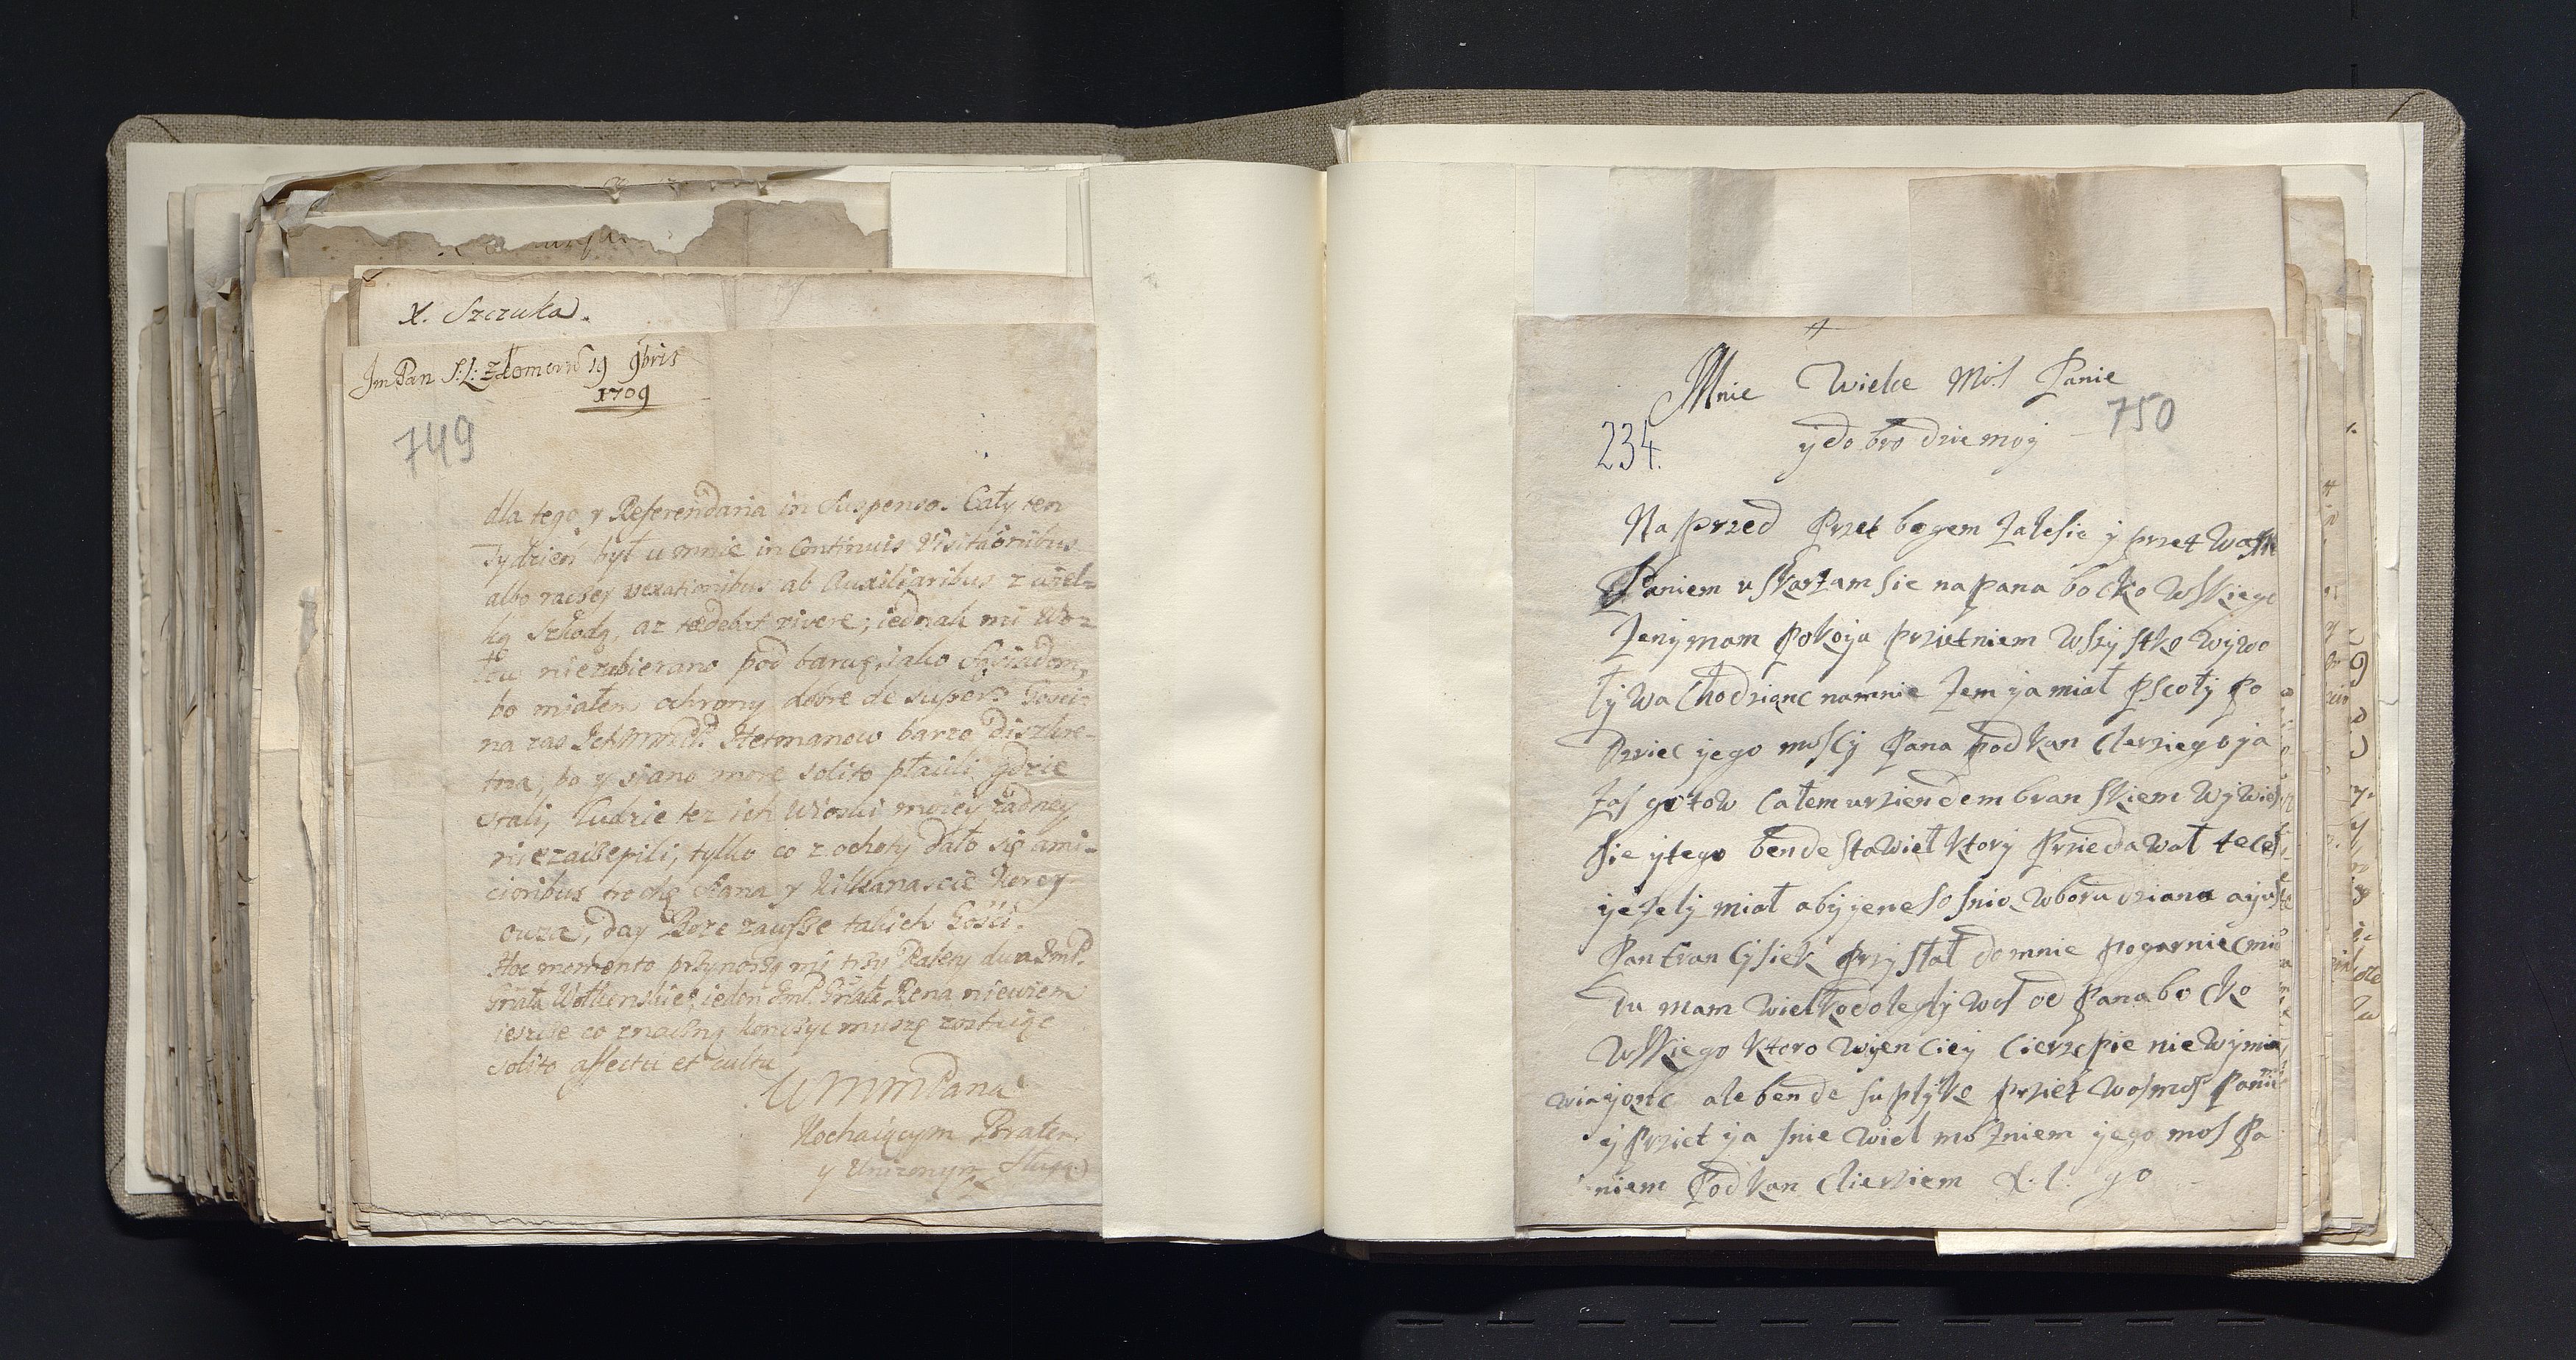 X. Szczuka.
Jm Pan S: L: z Łomerri 19 9bris
1709
749
dla tego y Referendaria in suspenso. Cały ten
Tydzień był u mnie in Continuis Visitaõnibus
albo raczey vexationibus ab Auxiliaribus z wiel-
ką szkodą, az tædebat vivere; iednak mi Wo-
łow niezabierano pod barwę, iako Sąsiadom,
bo miałem ochrony dobre de super. Gosci-
na zas Ich Hetmanow barzo diszkre-
tna, bo y siano more solito płacili gdzie
stali, Ludzie tez ich Wioski moiey żadney
niezaczepili, tylko co z ochoty dało się ami-
cioribus trochę Siana y kilkanascie Korcy
owsa, day Boze zawsze takich Gości.
Hoc momento przynoszą mi trzy Pakiety dwa Jmp.
ieden Jmp. Rena niewiem
ieszcze co znaczną konczyc muszę zostaiąc
solito affectu et cultu
WMMPana
Kochaiącym Bratem
y Unizonym Sługą
Mnie Wielce Mos Panie
y do bro dzie moy
234.
750
Na przed Przet bogem zalesie y przet Wasm
Paniem uskarzam sie na pana bocko Wskiego
zenymam pokoiu przietniem Wszystko wywo
ływa Chodzionc namnie zem ya miał Pscoły Po
Dziec yego moscy Pana pod kan clerziego ya
zas gotow całem urziendem bran skiem Wywies
sie ytego bende stawieł ktory Przieda wał te
yezely miał abyyene sosnio wboru dziano ayus
Pan fran Cysiek Przy stał domnie pogarniec mio
tu mam wielko dolegly wos od Pana bo cko
Wskiego ktoro wien ciey Cierzepie nie Wymia
wiajonc ale bende suplyke przief wasmos Panie
y Prziet ya snie wiel możniem yego mos Pa
niem Pod kan clierziem X. L. go